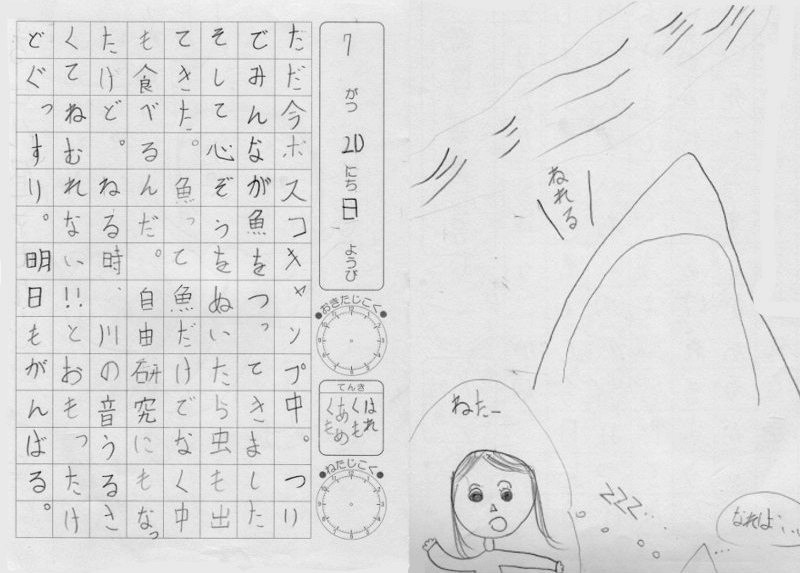 7 がつ 20 にち 日 ようび
おきたじこく
てんき
はれ
くも
あめ
くも
ねたじこく
ただ今ボスコキャンプ中。つり
でみんなが魚をつってきました
そして心ぞうをぬいたら虫も出
てきた。魚って魚だけでなく中
も食べるんだ。自由研究にもなっ
たけど。ねる時、川の音うるさ
くてねむれない!!とおもったけ
どぐっすり。明日もがんばる。
ねたー
ZZZ...